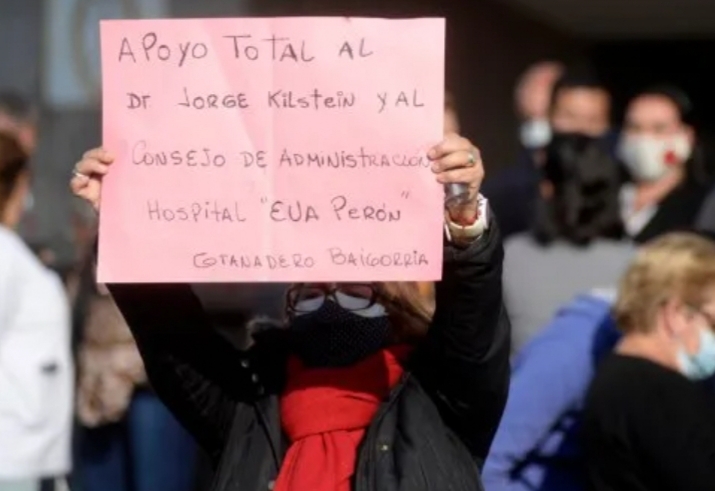 APOYO TOTAL AL
Dr JORGE Kilstein Y AL
CONSEJO DE ADMINISTRACCIÓN
HOSPITAL "EVA PERÓN"
GRANADERO BAIGORRIA